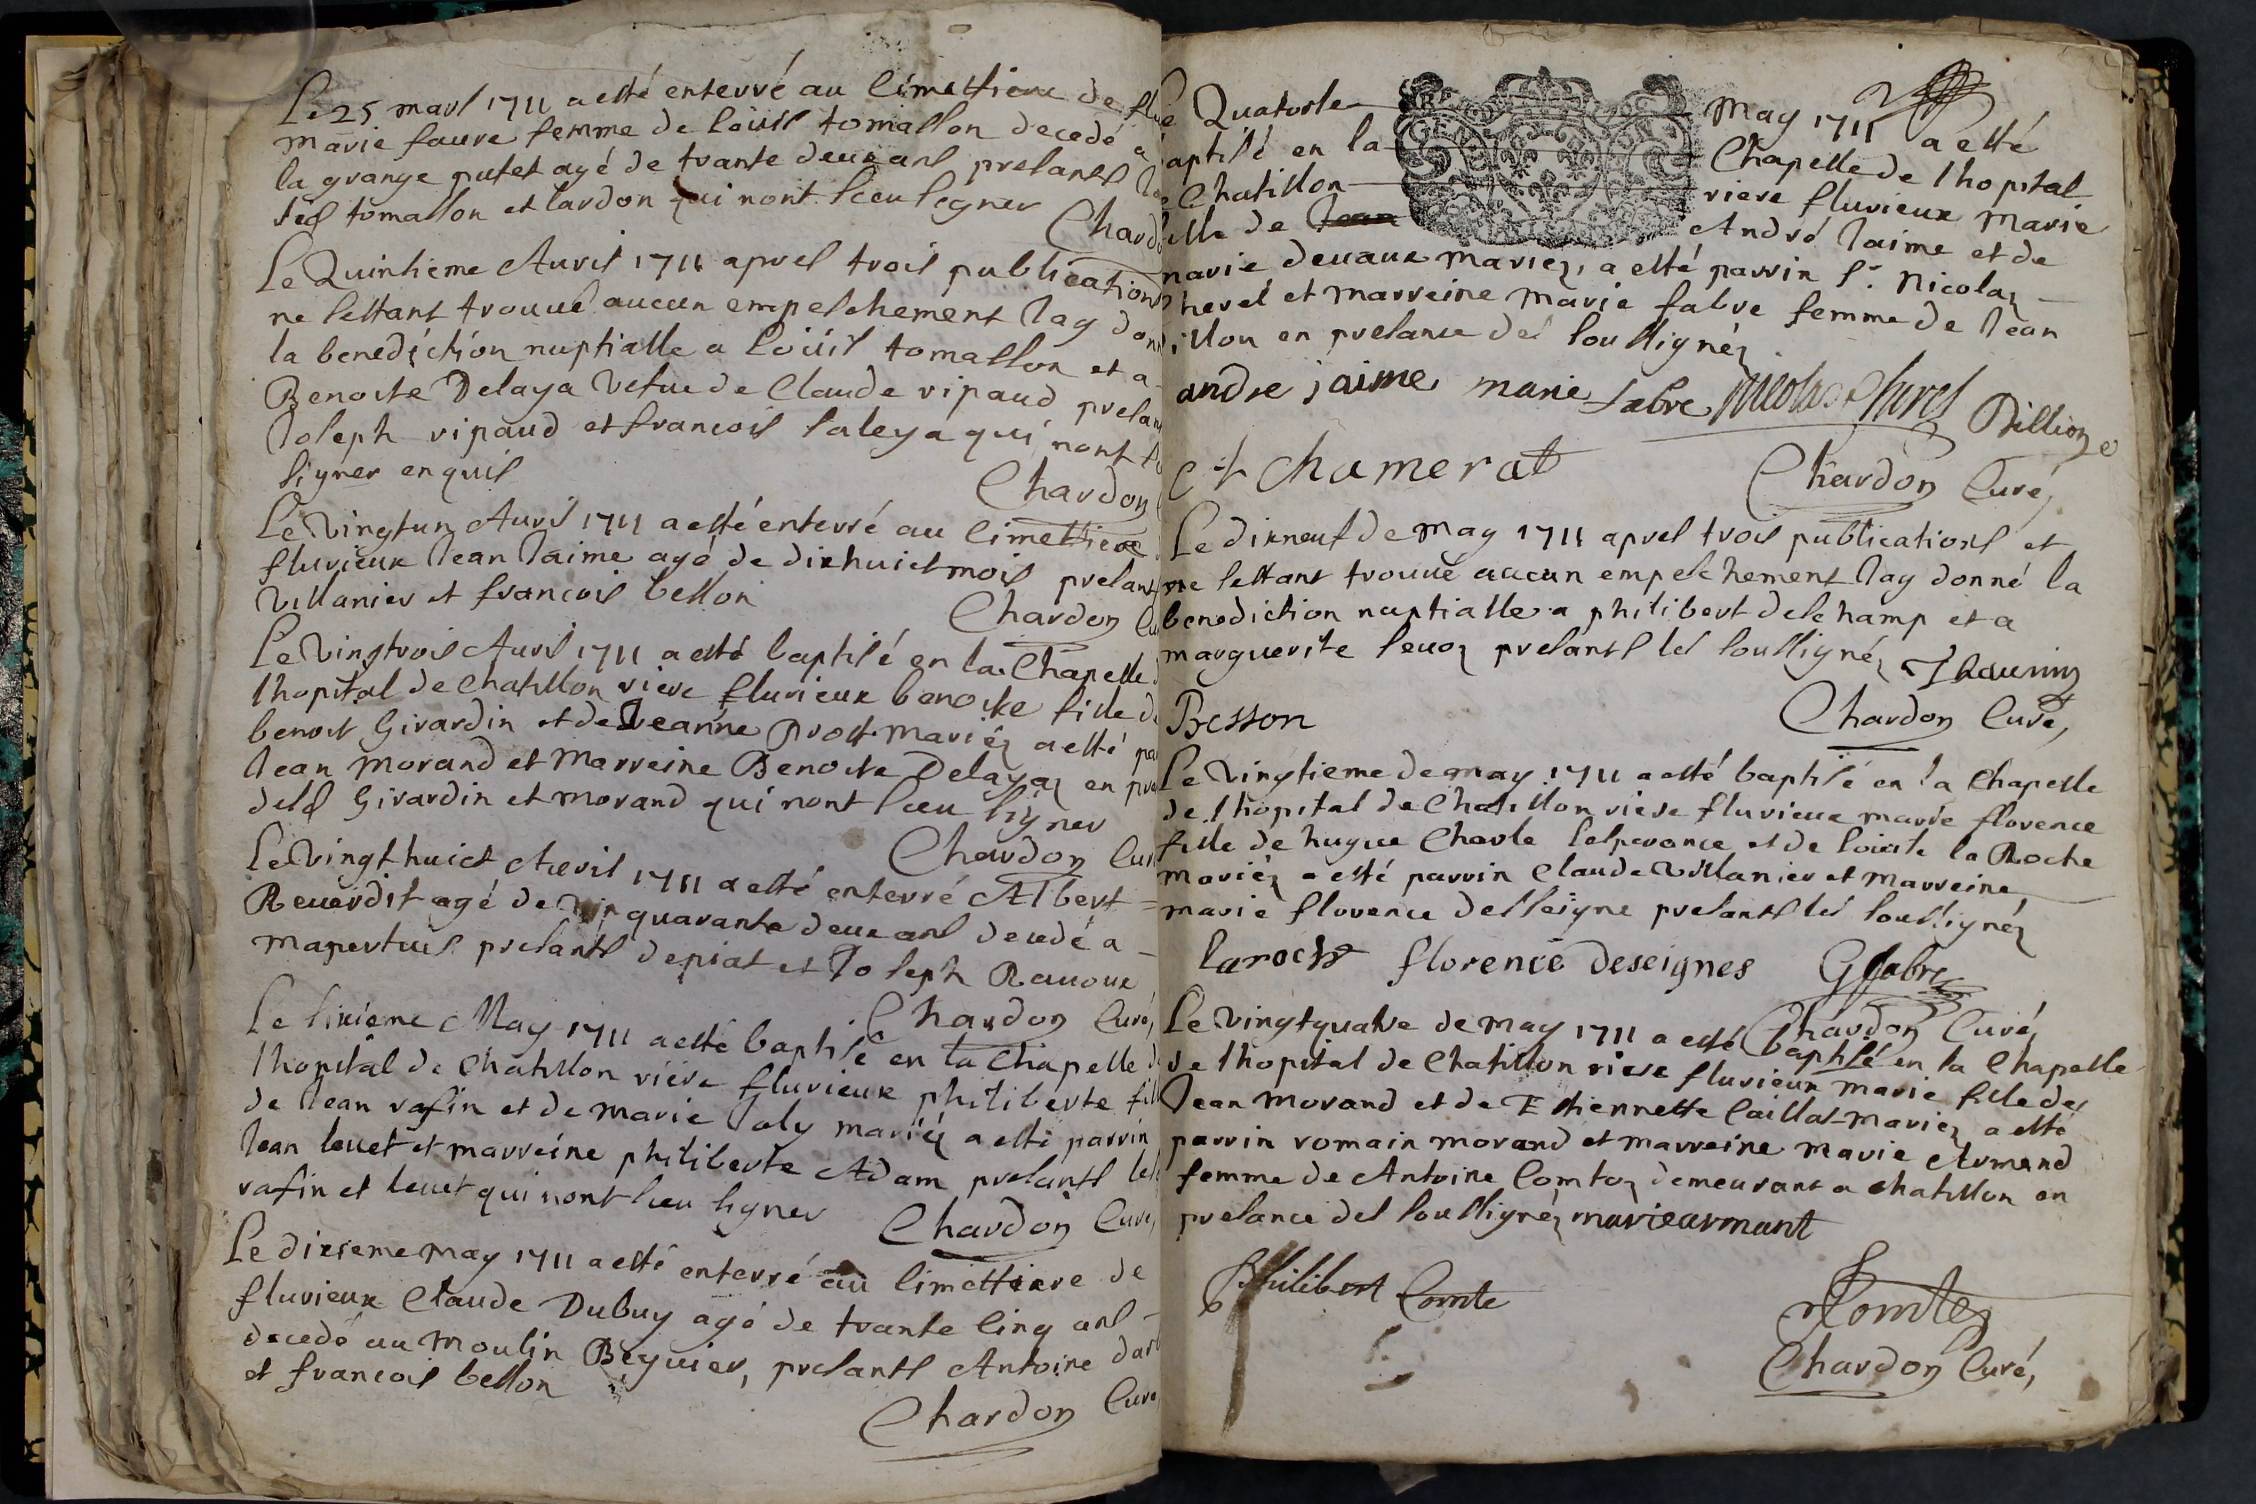 Le 25 mars 1711 a esté enterré au cimettiere de flu
marie faure femme de Loüis tomasson decedé a
la grange putet agé de trante deux ans presants
tomasson et lardon qui nont sceu signer Chard
Le Quinsieme Avril 1711 apres trois publications
ne sestant trouué aucun empeschement Jay donn
la benediction nuptialle a Loüis tomasson et a
Benoite Delaya vefue de Claude ripaud presan
Joseph ripaud et francois saleya qui nont
signer enquis Chardon
Le vingtun Avril 1711 a esté enterré au cimettiere
fluvieux Jean Jaime agé de dixhuict mois presan
Villanier et francois bellon Chardon Cu
Le vingtrois Avril 1711 a esté baptisé en la Chapelle
lhopital de Chatillon riere fluvieux benoite fille d
benoit Girardin et de Jeanne Prost mariéz a esté pa
Jean Morand et Marreine Benoite Delayaz en pre
desd Girardin et morand qui nont sceu signer
Chardon Cur
Le vingthuict Avril 1711 a esté enterré Albert
Reverdit agé de quarante deux ans decedé a
mapertuis presants depiat et Joseph Ravoux
Chardon Curé,
Le sixieme May 1711 a esté baptisé en la Chapelle d
lhopital de Chatillon riere fluvieux philiberte fill
de Jean rafin et de marie Joly mariéz a esté parrin
Jean levet et marreine philiberte Adam presants les
rafin et levet qui nont sceu signer Chardon Curé,
Le dixieme may 1711 a esté enterré au cimettiere de
fluvieux Claude Dubuy agé de trante cinq ans
decedé au moulin Beguier, presants Antoine dar
et francois bellon
Chardon Curé
e Quatorse May 1711 a esté
aptisé en la Chapelle de lhopital
e Chatillon riere fluvieux Marie
ille de Jean André Jaime et de
marie devaux mariez, a esté parrin Sr. Nicolaz
heret et marreine marie fabre femme de Jean
illon en presance des soussignéz
andre jaime marie fabre Nicolas Billion
Chamerat Chardon Curé,
Le dixneuf de may 1711 apres trois publications et
ne sestant trouué aucun empeschement Jay donné la
benediction nuptialle a philibert deschamp et a
marguerite sevoz presants les soussignéz Thaurin
Besson Chardon Curé,
Le vingtieme de may 1711 a esté baptisé en la Chapelle
de lhopital de Chatillon riere fluvieux marie florence
fille de hugue Charle lesperance et de Loüise la Roche
mariéz a esté parrin Claude Villanier et marreine
marie florence desseigne presants les soussignéz
laroche florence deseignes G fabre
Chardon Curé,
Le vingtquatre de may 1711 a esté baptisé en la Chapelle
de lhopital de Chatillon riere fluvieux marie fille de
Jean morand et de Estiennette Caillat mariez a esté
parrin romain morand et marreine marie Armand
femme de Antoine Comtoz demeurant a chatillon en
presance des soussignéz marie armant
Philibert Comte Comte
Chardon Curé,